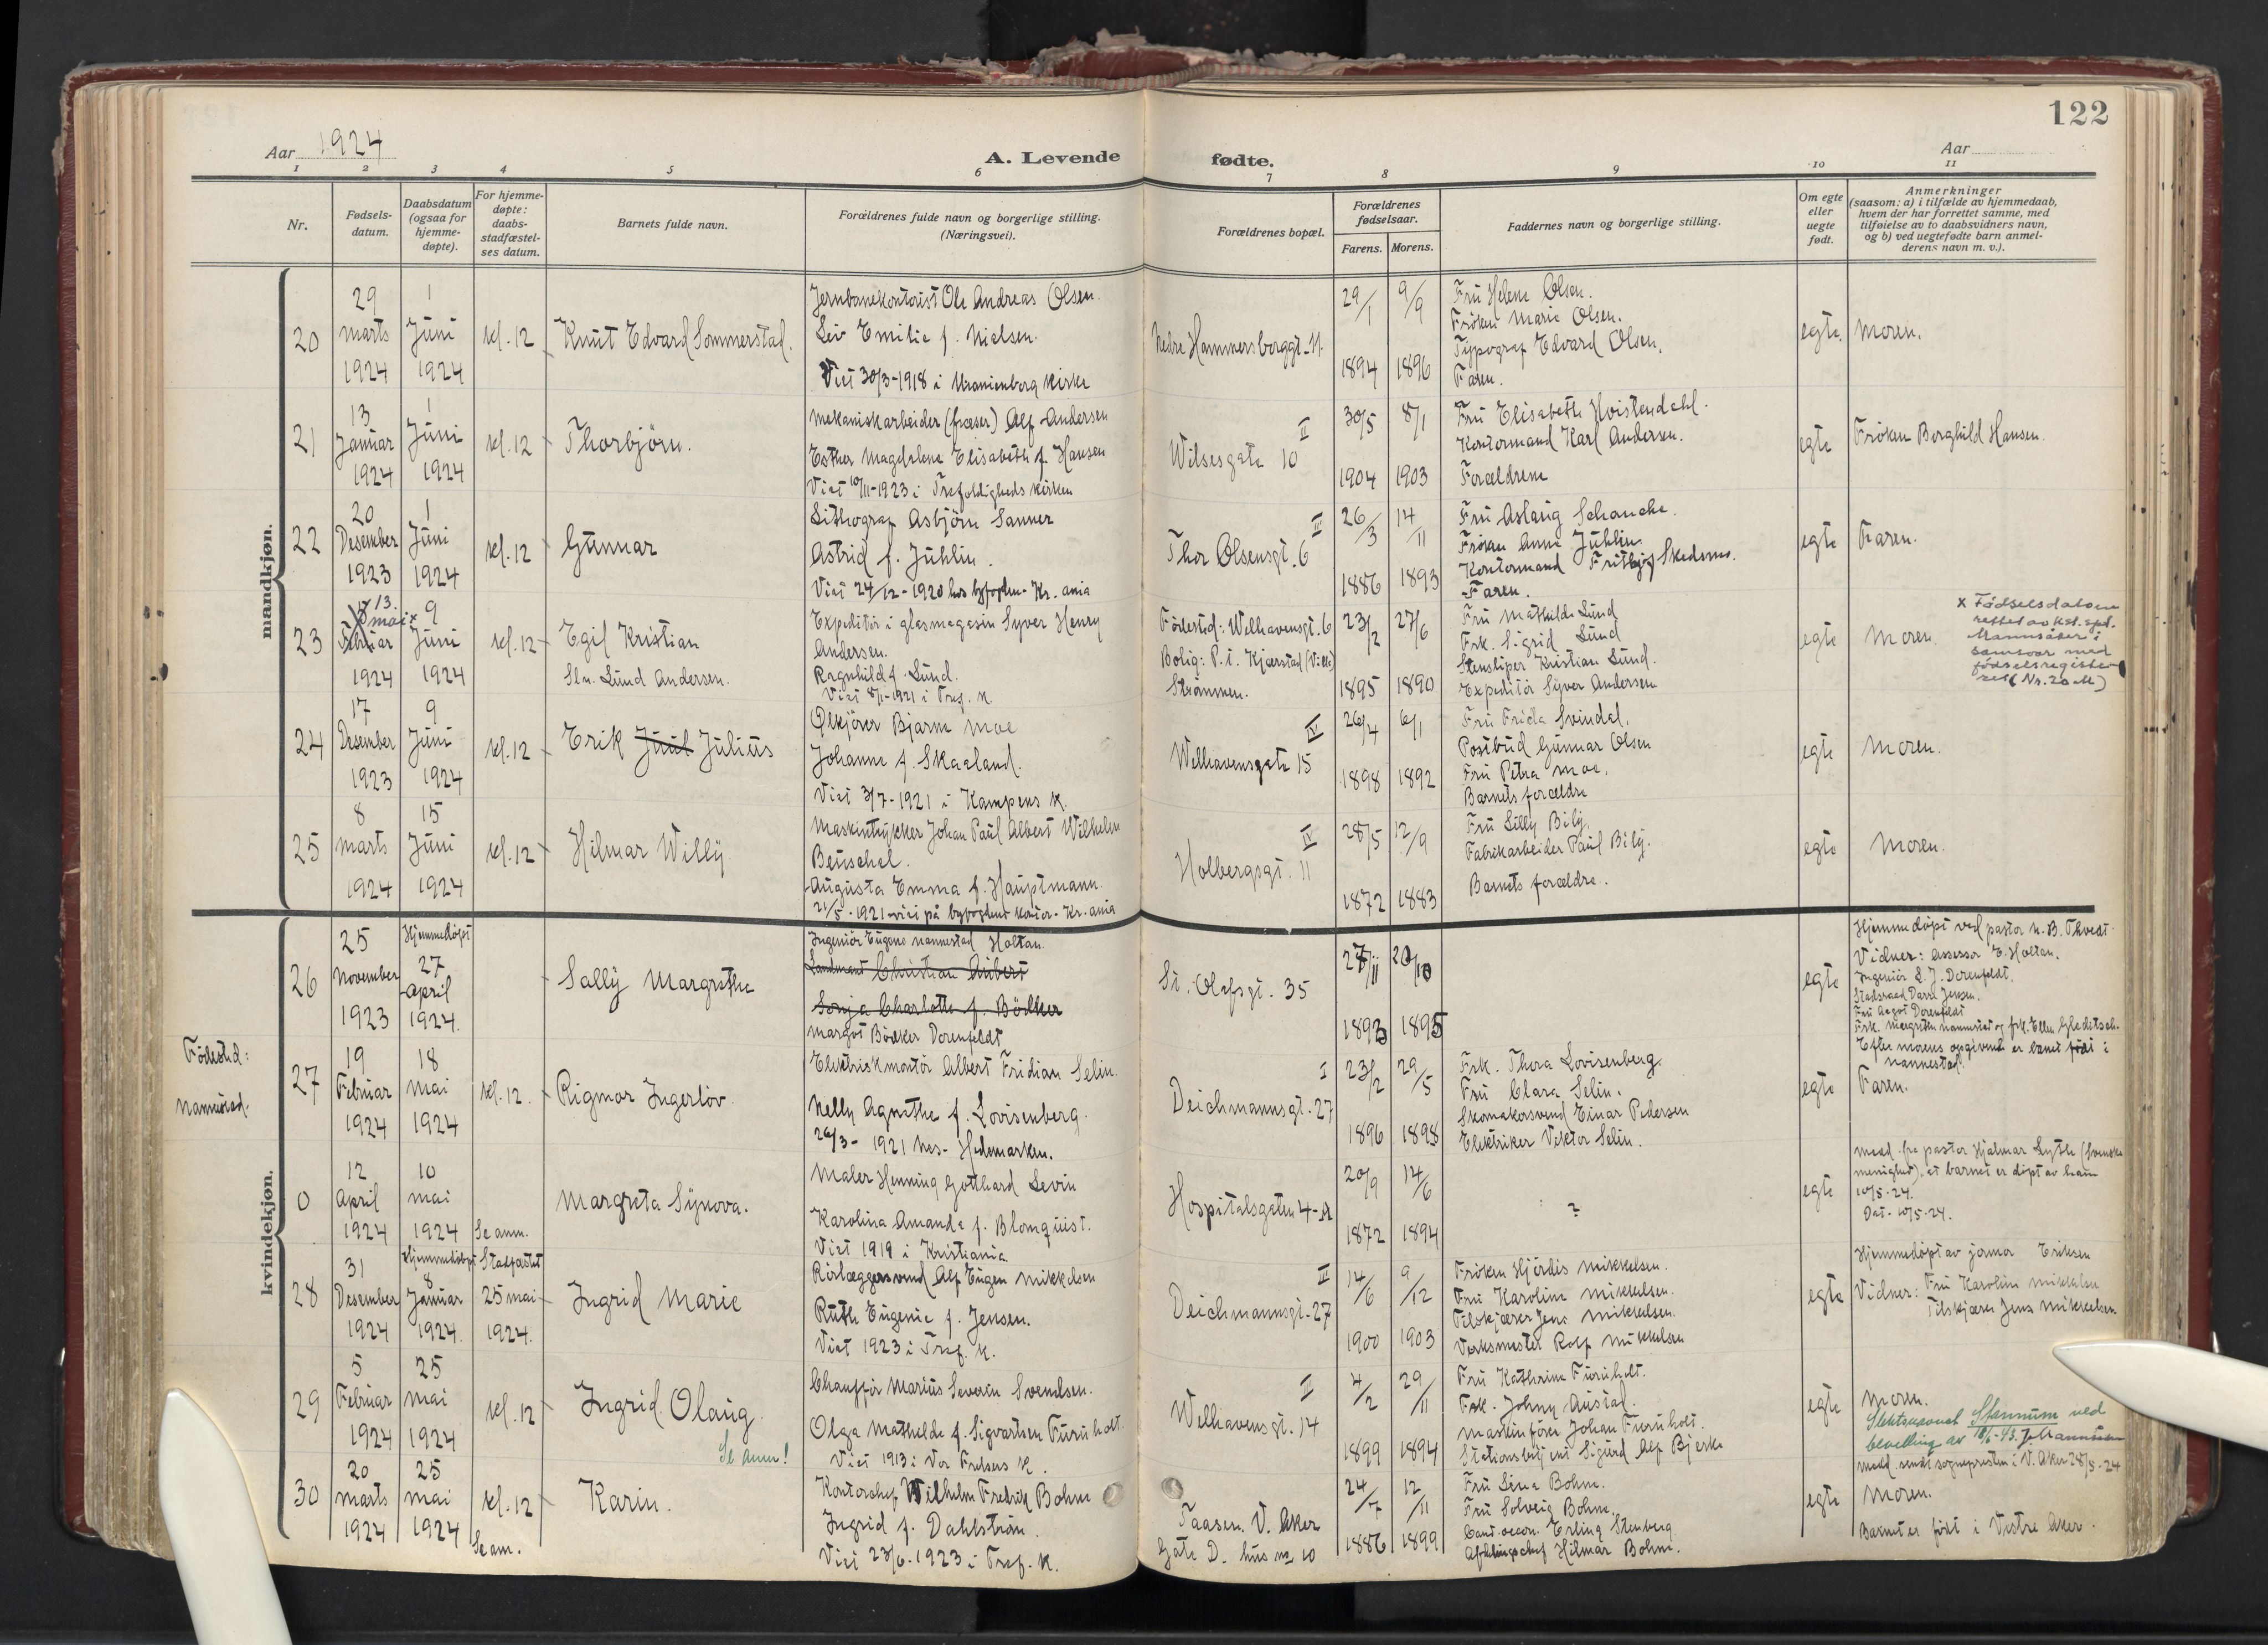 122
Aar 1924
A. Levende fødte.
Aar
1 2 3 4 5 6 7 8 9 10 11
Nr.
Fødsels-
datum.
Daabsdatum
(ogsaa for
hjemme-
døpte).
For hjemme-
døpte:
daabs-
stadfæstel-
ses datum.
Barnets fulde navn.
Forældrenes fulde navn og borgerlige stilling.
(Næringsvei).
Forældrenes bopæl.
Forældrenes
fødselsaar.
Farens. Morens.
Faddernes navn og borgerlige stilling.
Om egte
eller
uegte
født.
Anmerkninger
(saasom: a) i tilfælde av hjemmedaab,
hvem der har forrettet samme, med
tilføielse av to daabsvidners navn,
og b) ved uegtefødte barn anmel-
derens navn m. v.).
mandkjøn.
20
29
marts
1924
1
Juni
1924
kl. 12
Knut Edvard Sommerstad.
Jernbanekontorist Ole Andreas Olsen.
Liv Emilie f. Nielsen.
Viet 30/3-1918 i Uranienborg Kirke
Nedre Hammersborggt. 11
29/1 9/9
1894 1896
Fru Helene Olsen.
Frøken Marie Olsen.
Typograf Edvard Olsen.
Faren.
egte.
Moren.
21
13
Januar
1924
1
Juni
1924
kl. 12
Thorbjörn.
Mekaniskarbeider (fræser) Alf Andersen
Esther Magdalene Elisabeth f. Hansen
Viet 10/11-1923 i Trefoldigheds kirken
II
Wilsesgate 10
30/5 8/1
1904 1903
Fru Elisabeth Hvistendahl.
Kontormand Karl Andersen.
Forældrene
egte
Frøken Borghild Hansen.
22
20
Desember
1923
1
Juni
1924
kl. 12
Gunnar
Lithograf Asbjörn Sanner
Astrid f. Juhlin.
Viet 24/12-1920 hos byfogden Kr.ania
III
Thor Olsensgt. 6
26/3 14/11
1886 1893
Fru Aslaug Schancke.
Frøken Anna Juhlin.
Kontormand Frithjof Skedsmo.
Faren.
egte
Faren.
23
13.
mai x
Februar
1924
9
Juni
1924
kl. 12
Egil Kristian
Sln. Lund Andersen.
Expeditör i glasmagasin Syver Henry
Andersen.
Ragnhild f. Lund.
Viet 8/1-1921 i Tref. K.
Födested: Welhavensgt. 6
Bolig: P.t. Kjærstad (Villa)
Strømmen.
23/2 27/6
1895 1890
Fru Mathilde Lund
Frk. Sigrid Lund
Stensliper Kristian Lund.
Expeditör Syver Andersen
egte
Moren
x Fødselsdatoen
rettet av kst. spr.
Mannsåker i
samsvar med
fødselsregiste-
ret (Nr. 20 M)
24
17
Desember
1923
9
Juni
1924
kl. 12
Erik Juul Julius
Ølkjører Bjarne Moe
Johanne f. Skaaland.
Viet 3/7-1921 i Kampens K.
IV
Welhavensgate 15
26/4 6/1
1898 1892
Fru Frida Svindal.
Postbud Gunnar Olsen
Fru Petra Moe.
Barnets forældre
egte
Moren.
25
8
marts
1924
15
Juni
1924
kl. 12
Hilmar Willy
Maskintrykker Johan Paul Albert Wilhelm
Beuschel.
Augusta Emma f. Hauptmann.
21/5-1921 viet på byfogdens kontor. Kr.ania
IV
Holbergsgt. 11
28/5 12/9
1872 1883
Fru Lilly Bily.
Fabrikarbeider Paul Bily.
Barnets forældre.
egte
Moren.
kvindekjøn.
Födested:
Nannestad.
26
25
November
1923
Hjemmedöpt
27
April
1924.
Sally Margrethe
Ingeniör Eugene Nannestad Holtan.
Landmand Christian Aubert
Sonja Charlotte f. Bödker
Margot Bödker Dorenfeldt
St. Olafsgt. 35
27/11 20/10
1893 1895
egte
Hjemmedöpt ved pastor N. B. Thvedt
Vidner: Assessor E. Holtan.
Ingeniör L. J. Dorenfeldt.
Stadsraad Darre Jensen.
Fru Aagot Dorenfeldt
Frk. Margrethe Nannestad og frk. Ellen Gleditsch.
Efter morens opgivende er barnet födt i
Nannestad.
27
19
Februar
1924
18
Mai
1924
kl. 12.
Rigmor Ingerlöv.
Elektriskmontör Albert Fridian Selin.
Nelly Agnethe f. Lovisenberg.
26/3-1921 Nes-Hedemarken.
I
Deichmannsgt. 27
23/2 29/5
1896 1898
Frk. Thora Lovisenberg.
Fru Clara Selin.
Skomakersvend Einar Pedersen
Elektriker Viktor Selin.
egte
Faren.
0
12
April
1924
10
mai
1924
Se anm.
Margreta Synova.
Maler Henning Gotthard Levin
Karolina Amanda f. Blomquist.
Viet 1919 i Kristiania
Hospitalsgaten 4-A
20/9 14/6
1872 1894
?
egte
Medd. fra pastor Hjalmar Lyth (svenske
menighet), at barnet er döpt av ham
10/5-24.
Dat. 10/5-24.
28
31
Desember
1924
Hjemmedöpt
8
Januar
1924.
Stadfæstet
25 mai
1924.
Ingrid Marie
Rörlæggersvend Alf Eugen Mikkelsen
Ruth Eugenie f. Jensen.
Viet 1923 i Tref. K.
II
Deichmannsgt. 27
14/6 9/12
1900 1903
Frøken Hjördis Mikkelsen.
Fru Karoline Mikkelsen.
Tilskjærer Jens Mikkelsen.
Verksmester Rolf Mikkelsen
egte
Hjemmedöpt av jormor Eriksen
Vidner: Fru Karoline Mikkelsen
Tilskjærer Jens Mikkelsen
29
5
Februar
1924
25
mai
1924
kl. 12
Ingrid Olaug.
Se anm!
Chaufför Marius Severin Svendsen.
Olga Mathilde f. Sigvartsen Furuholt.
Viet 1913 i Vor Frelsers K.
II
Welhavensgt. 14
4/2 29/11
1899 1894
Fru Kathrine Furuholt.
Frk. Johny Austad.
Maskinförer Johan Furuholt.
Stationsbetjent Sigurd Alf Bjerke
egte
Moren.
Slektsnavnet Stannum ved
bevilling av 18/6-43.
Medd. sendt sogneprestn i V. Aker 28/5-24
30
20
marts
1924
25
mai
1924
kl. 12
Se anm.
Karin.
Kontorchef Wilhelm Fredrik Bohne
Ingrid f. Dahlström.
Viet 23/6-1923 i Tref. K.
Taasen. V. Aker
Gate D. hus no 10
24/7 12/11
1886 1899
Fru Lina Bohne.
Fru Solveig Bohne.
Cand. oecon. Erling Stenberg.
Afdelingschef Hilmar Bohne.
egte
Moren.
Barnet er födt i Vestre Aker.